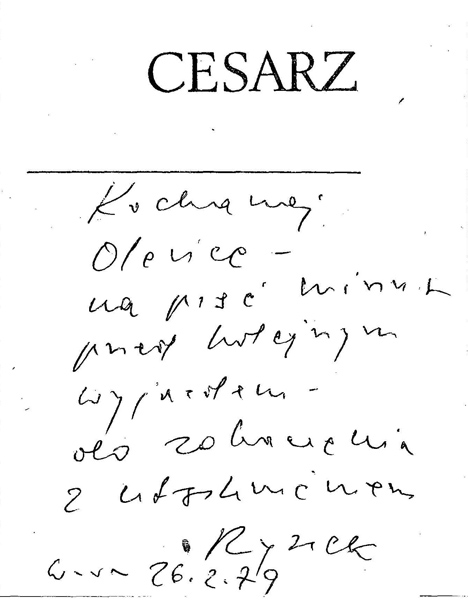 CESARZ
Kochanej
Oleńce –
na pięć minut
przed kolejnym
wyjazdem –
do zobaczenia
z utęsknieniem
Rysiek
W-wa 26.2.79